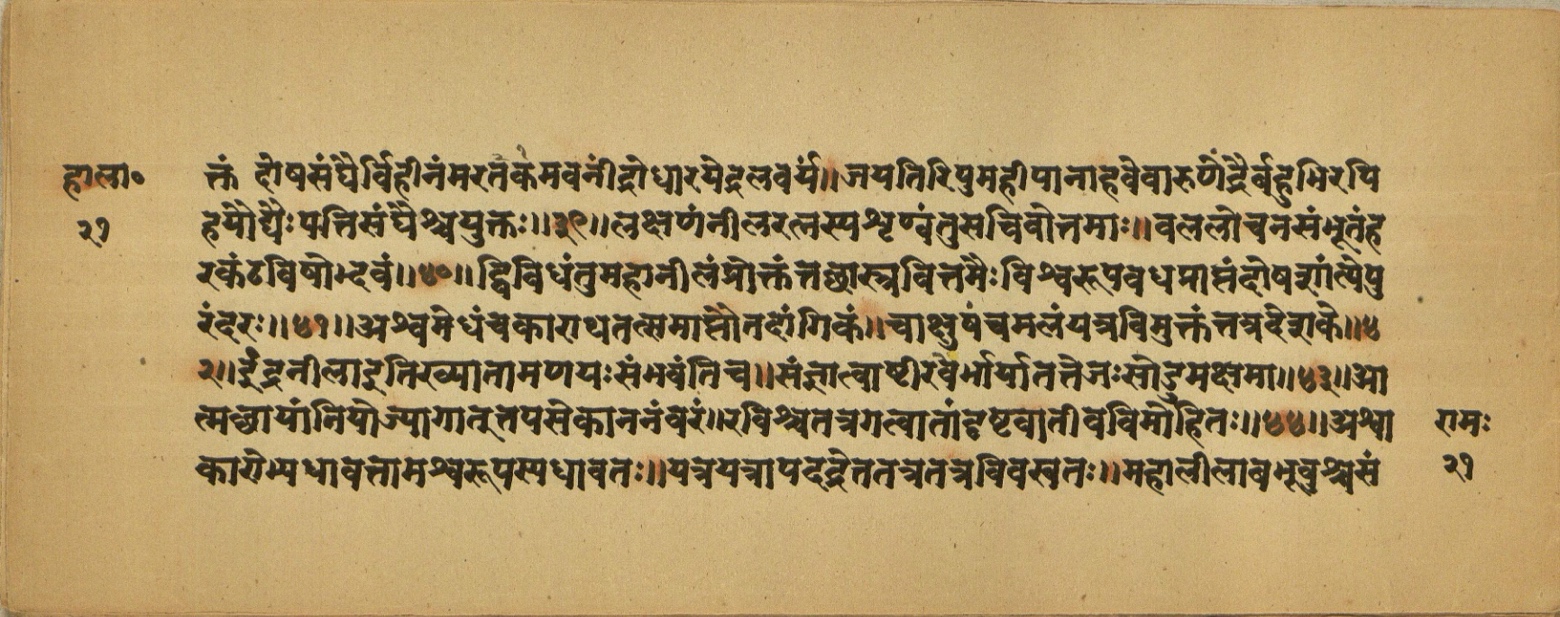 हाला॰ क्तं दोषसंघैर्विहीनंमरतकमवनींद्रोधारयेद्रलवर्यं॥जयतिरिपुमहीपानाहवेवारुणेंद्रैर्बहुभिरपि
२१ हयौघैःपत्तिसंघैश्चयुक्तः॥३९॥लक्षणंनीलरत्नस्यशृण्वंतुसचिवोत्तमाः॥बललोचनसंभूतंह
रकंठविषोद्भवं॥४०॥द्विविधंतुमहानीलंप्रोक्तंतच्छास्त्रवित्तमैः विश्वरूपवधप्राप्तंदोषशांत्यैपु
रंदरः॥४१॥अश्वमेधंचकाराथतत्समाप्तौतदांगिकं॥चाक्षुषंचमलंयत्रविमुक्तंतत्रदेशके॥४
२॥इंद्रनीलाइतिख्यातामणयःसंभवंतिच॥संज्ञात्वाष्टीरवेर्भार्यातत्तेजःसोढुमक्षमा॥४३॥आ
त्मछायांनियोज्यागात्तुतपसेकाननंवरं॥रविश्चतत्रगत्वातांदृष्टवातीवविमोहितः॥४४॥अश्वा रामः
कारोभ्यधावत्तामश्वरूपस्यधावतः॥यत्रयत्रापदद्रेततत्रतत्रविवस्वतः॥महालीलाबभूवुश्चसं २१